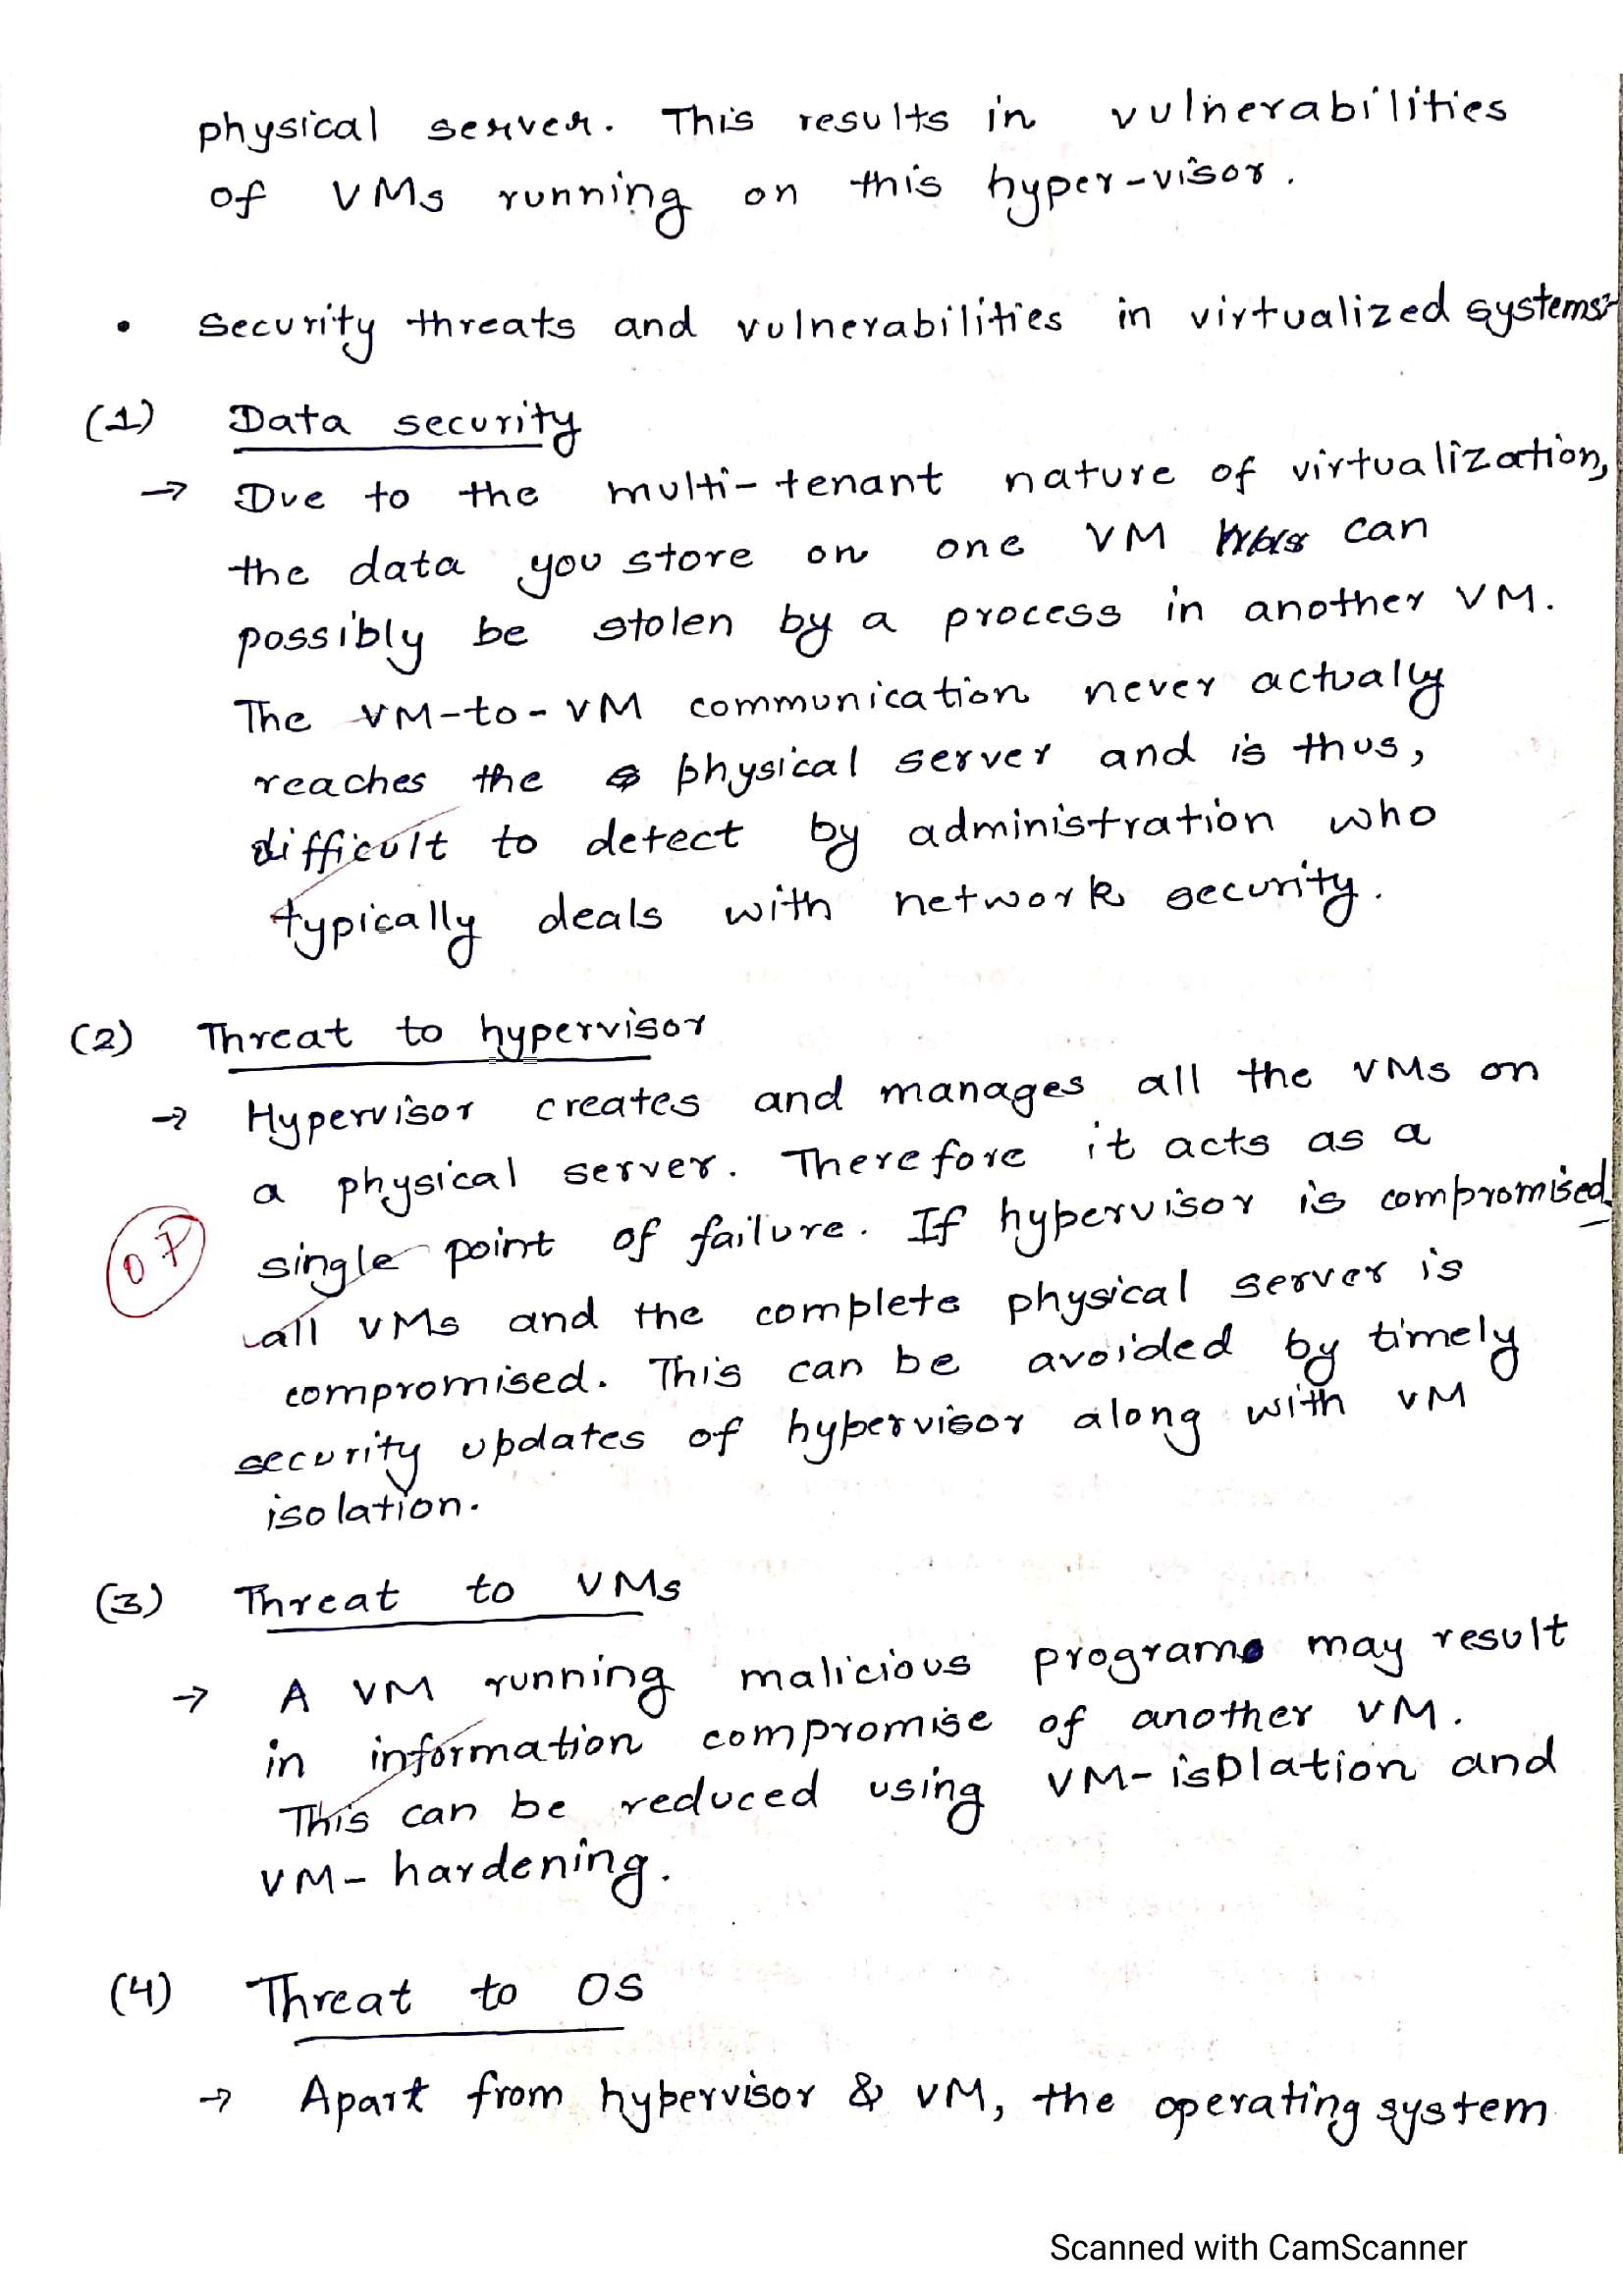 physical server. This results in vulnerabilities
of VMs running on this hyper-visor.
• Security threats and vulnerabilities in virtualized systems:-
(1) Data security
→ Due to the multi-tenant nature of virtualization,
the data you store on one VM can
possibly be stolen by a process in another VM.
The VM-to-VM communication never actually
reaches the physical server and is thus,
difficult to detect by administration who
typically deals with network security.
(2) Threat to hypervisor
→ Hypervisor creates and manages all the VMs on
a physical server. Therefore it acts as a
single point of failure. If hypervisor is compromised,
07
all VMs and the complete physical server is
compromised. This can be avoided by timely
security updates of hypervisor along with VM
isolation.
(3) Threat to VMs
→ A VM running malicious programs may result
in information compromise of another VM.
This can be reduced using VM-isolation and
VM-hardening.
(4) Threat to OS
→ Apart from hypervisor & VM, the operating system
Scanned with CamScanner